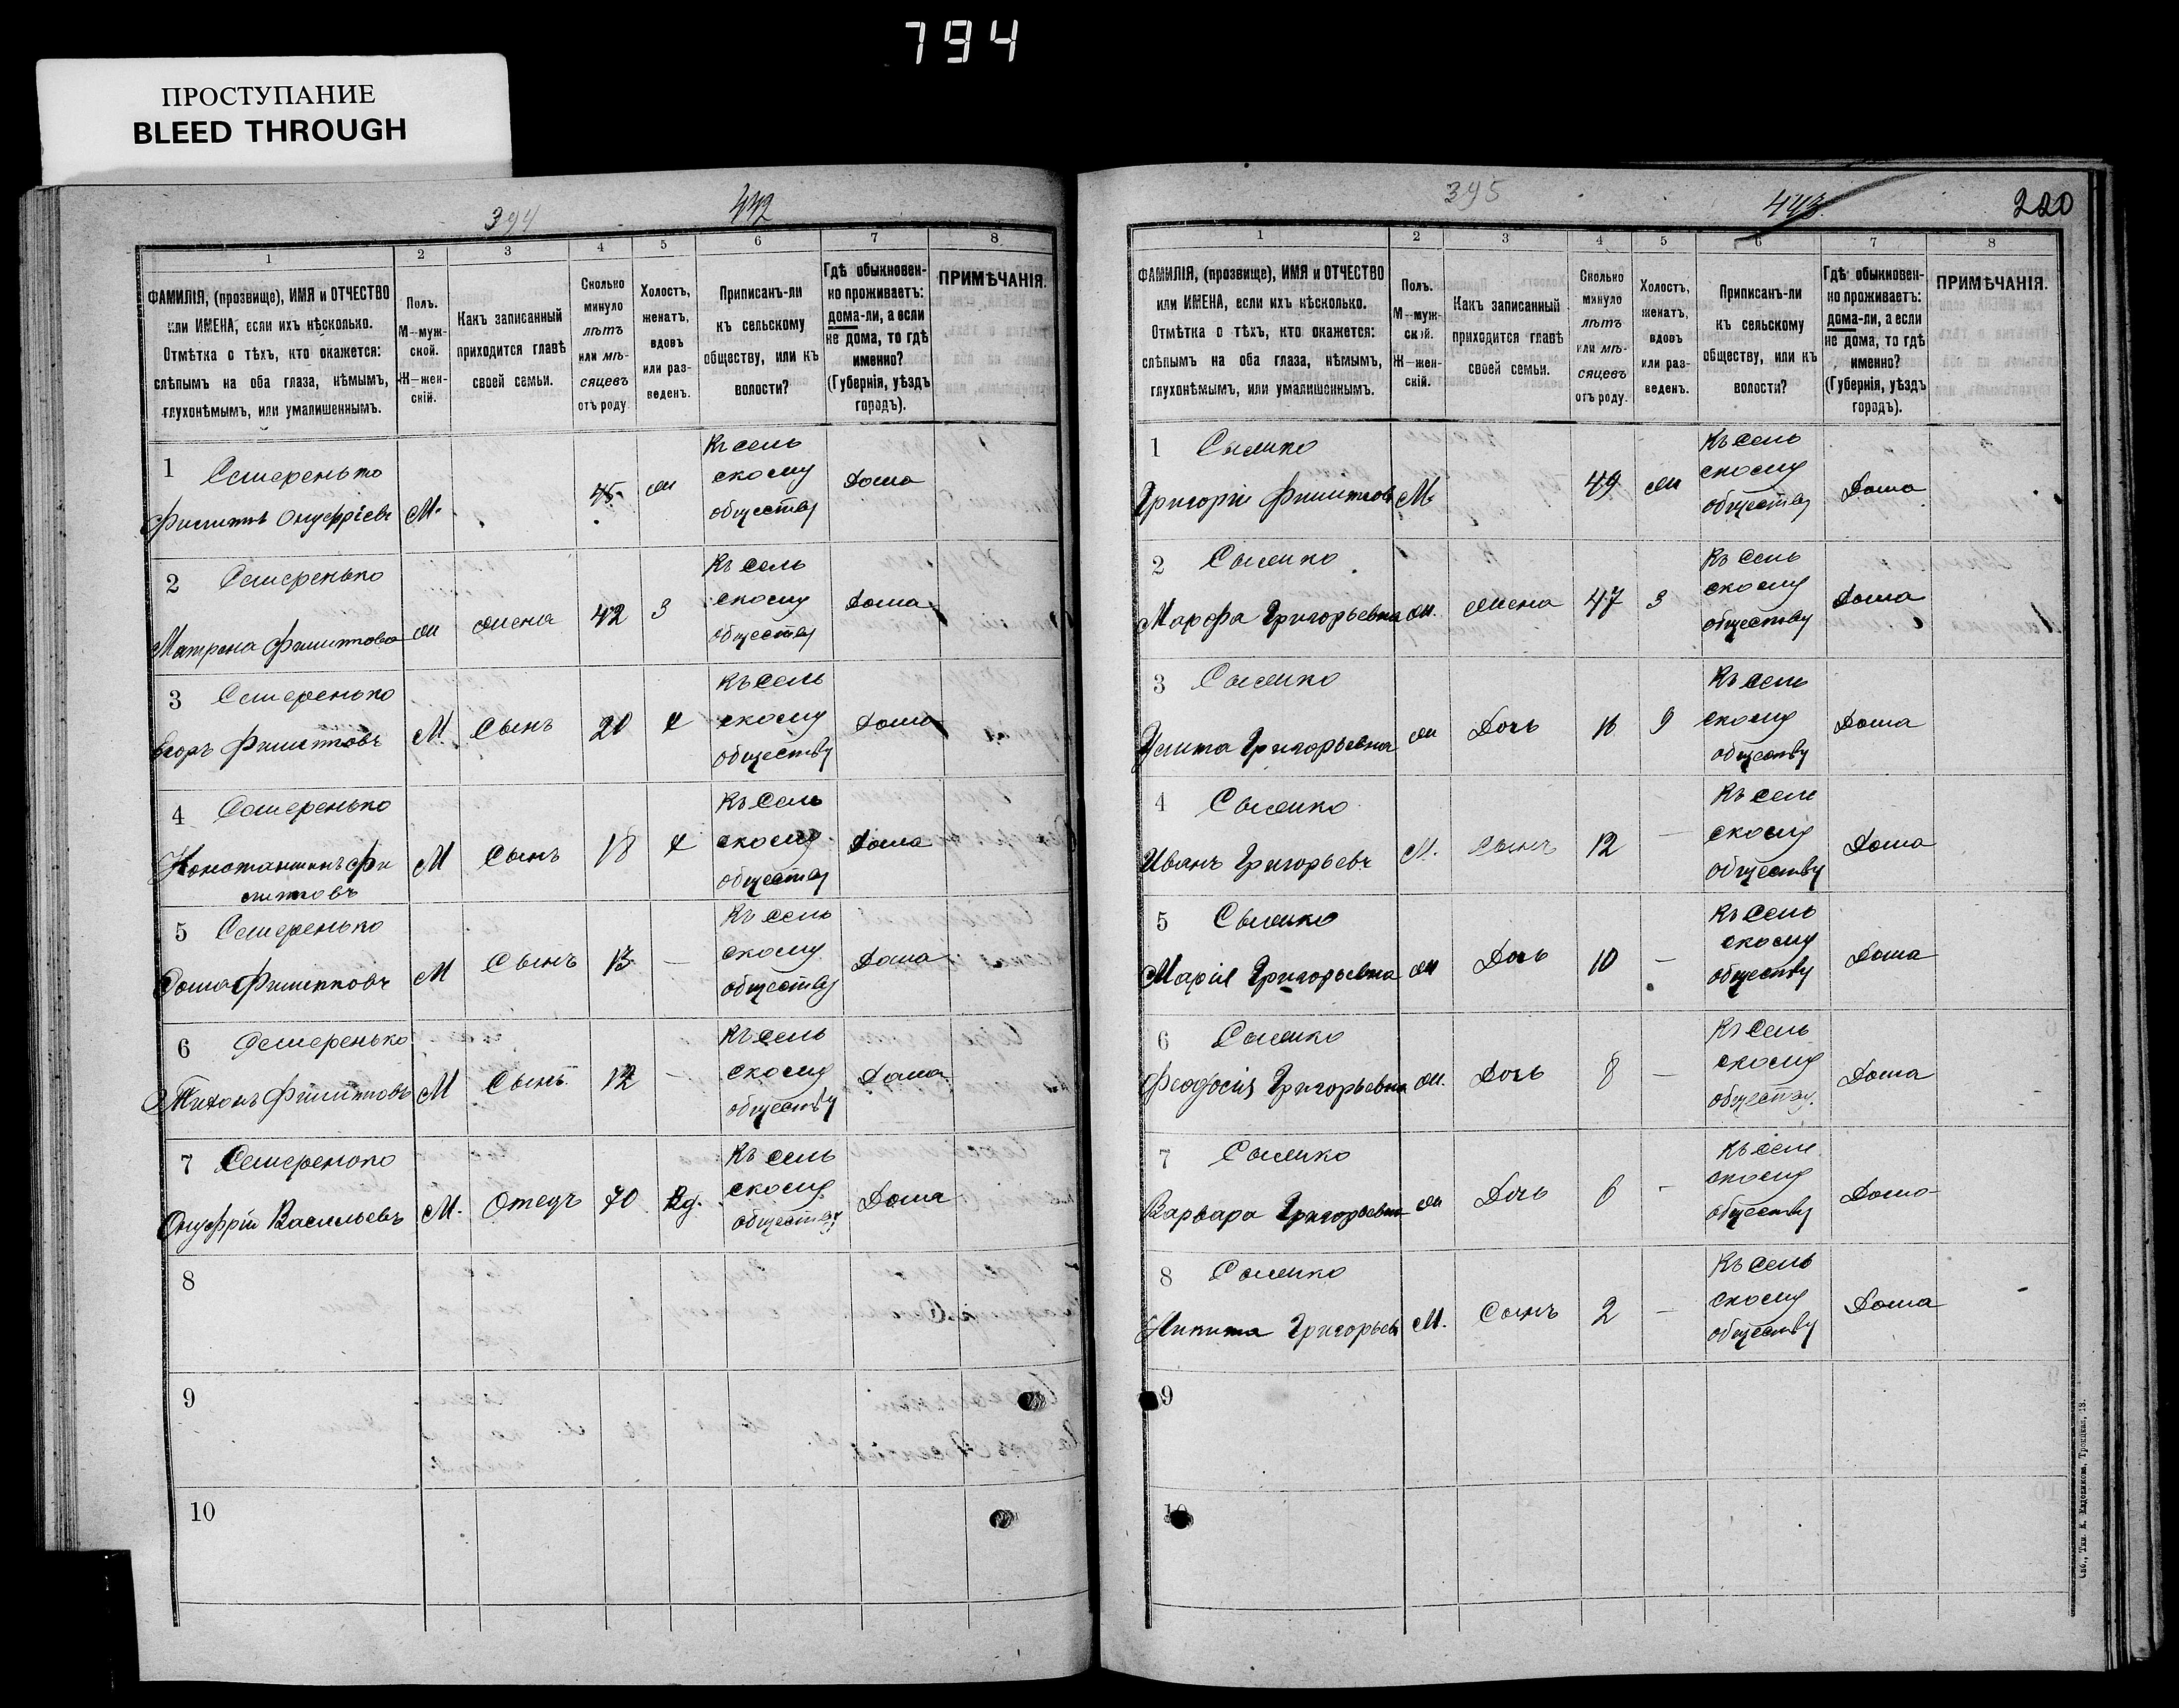 794
ПРОСТУПАНИЕ
BLEED THROUGH
394
442
1 2 3 4 5 6 7 8
ФАМИЛІЯ, (прозвище), ИМЯ и ОТЧЕСТВО или ИМЕНА, если ихъ нѣсколько. Отмѣтка о тѣхъ, кто окажется: слѣпымъ на оба глаза, нѣмымъ, глухонѣмымъ, или умалишеннымъ.
Полъ. М—мужской. Ж—женскій.
Какъ записанный приходится главѣ своей семьи.
Сколько минуло лѣтъ или мѣсяцевъ отъ роду.
Холостъ, женатъ, вдовъ или разведенъ.
Приписанъ-ли къ сельскому обществу, или къ волости?
Гдѣ обыкновенно проживаетъ: дома-ли, а если не дома, то гдѣ именно? (Губернія, уѣздъ городъ).
ПРИМѢЧАНІЯ.
1 Семеренько
Филиппъ Онуфріевъ М. 45 ж Къ сельскому обществу Дома
2 Семеренько
Матрона Филиппова ж жена 42 З Къ сельскому обществу Дома
3 Семеренько
Егоръ Филипповъ М. Сынъ 20 х Къ сельскому обществу Дома
4 Семеренько
Константинъ Филипповъ М Сынъ 18 х Къ сельскому обществу Дома
5 Семеренько
Фома Филипповъ М Сынъ 13 — Къ сельскому обществу Дома
6 Семеренько
Тихонъ Филипповъ М Сынъ 12 — Къ сельскому обществу Дома
7 Семеренько
Онуфрій Васильевъ М. Отецъ 70 Вд. Къ сельскому обществу Дома
8
9
10
395
443
220
1 2 3 5 4 6 7 8
ФАМИЛІЯ, (прозвище), ИМЯ и ОТЧЕСТВО или ИМЕНА, если ихъ нѣсколько. Отмѣтка о тѣхъ, кто окажется: слѣпымъ на оба глаза, нѣмымъ, глухонѣмымъ, или умалишеннымъ.
Полъ. М—мужской. Ж—женскій.
Какъ записанный приходится главѣ своей семьи.
Сколько минуло лѣтъ или мѣсяцевъ отъ роду.
Холостъ, женатъ, вдовъ или разведенъ.
Приписанъ-ли къ сельскому обществу, или къ волости?
Гдѣ обыкновенно проживаетъ: дома-ли, а если не дома, то гдѣ именно? (Губернія, уѣздъ городъ).
ПРИМѢЧАНІЯ.
1
Григорій Филипповъ М. 49 ж Къ сельскому обществу Дома
2
Марфа Григорьевна ж. жена 47 З Къ сельскому обществу Дома
3
Улита Григорьевна ж Дочь 16 Къ сельскому обществу Дома
4
Иванъ Григорьевъ М. Сынъ 12 — Къ сельскому обществу Дома
5
Марія Григорьевна ж Дочь 10 — Къ сельскому обществу Дома
6
Феодосія Григорьевна ж. Дочь 8 — Къ сельскому обществу. Дома
7
Варвара Григорьевна ж Дочь 6 - Къ сельскому обществу Дома
8
Никита Григорьевъ М. Сынъ 2 — Къ сельскому обществу Дома
9
10